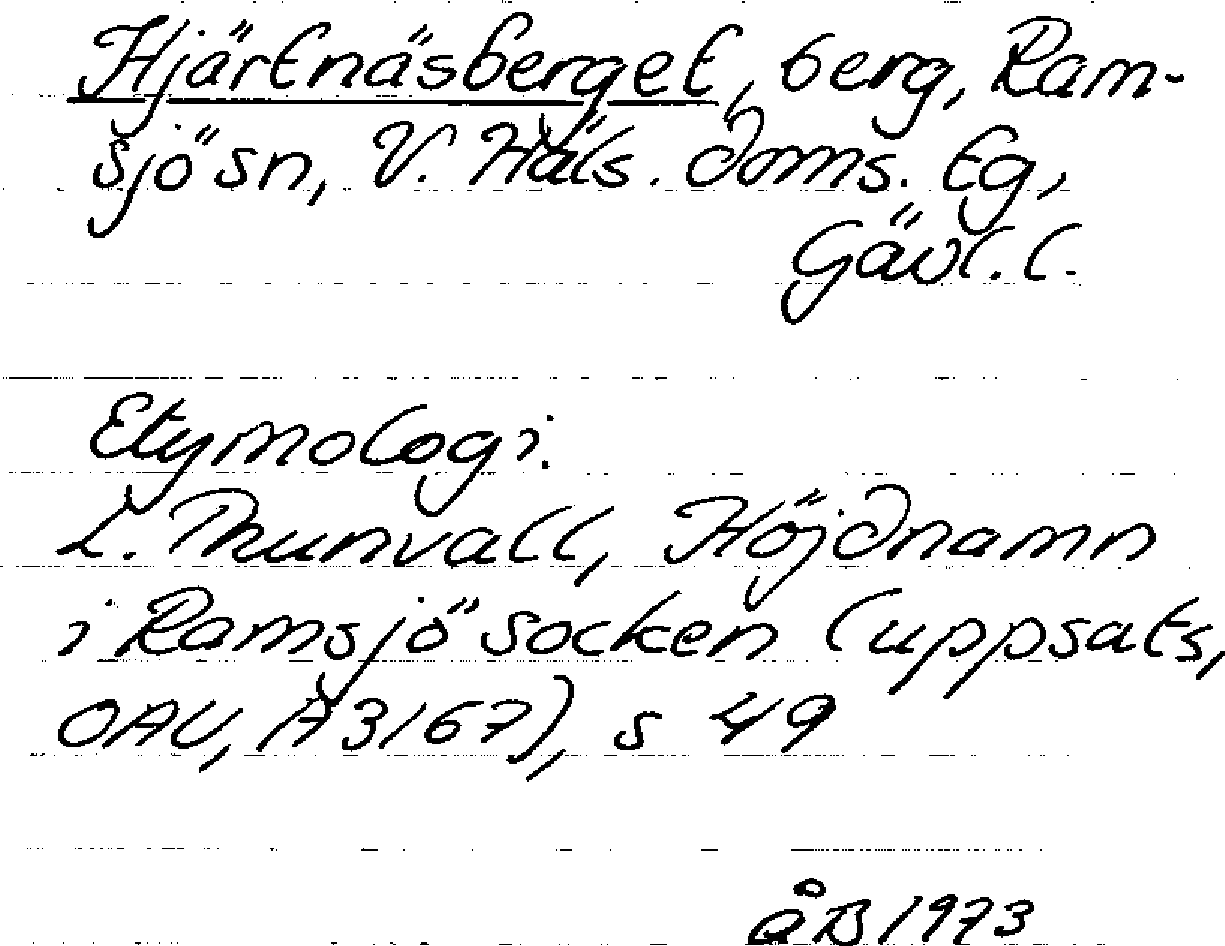 Hjärtnäsberget, berg, Ram-
sjö sn, V. Häls. doms. tg,
Gävl. l.
Etymologi.
L. Thunvall, Höjdnamn
i Ramsjö socken (uppsats,
OAU, A 3167), s 49
åB 1973